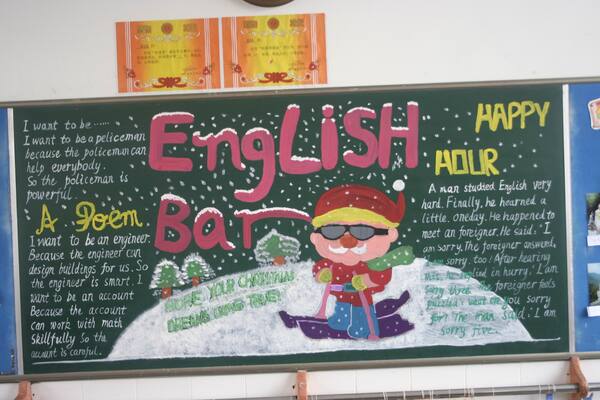 EngLiSH
Bar
I want to be ......
I want to be a policeman
because the policeman can
help everybody.
So the policeman is
powerful.
A Poem
I want to be an engineer.
Because the engineer can
design buildings for us. So
the engineer is smart. I
want to be an account
Because the account
can work with math
skillfully So the
account is careful.
HOPE YOUR CHRISTMAS
DREAMS COME TRUE!
HAPPY
HOUR
A man studied English very
hard. Finally, he learned a
little. Oneday. He happened to
meet an foreigner. He said: I
am sorry. The foreigner answerd,
I am sorry, too! After hearing
this, he replied in hurry: I am
sorry three. The foreigner feels
puzzled: What are you sorry
for? The man said: I am
sorry five.